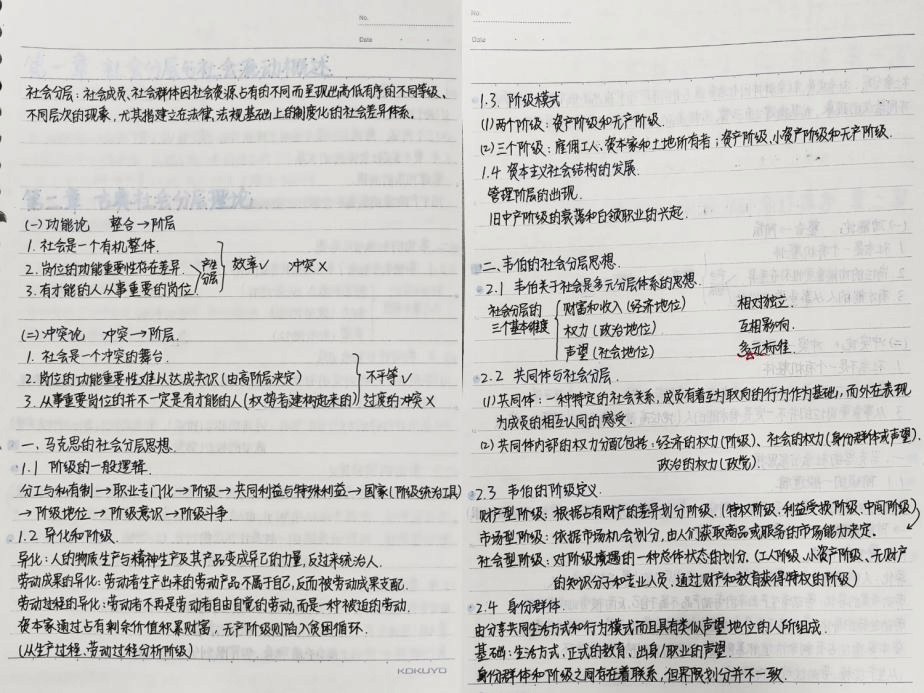 No.
Date
第一章 社会分层与社会流动概述
社会分层：社会成员、社会群体因社会资源占有的不同而呈现出高低有序的不同等级、
不同层次的现象，尤其指建立在法律、法规基础上的制度化的社会差异体系。
第二章 古典社会分层理论
(一)功能论 整合→阶层
1.社会是一个有机整体.
2.岗位的功能重要性存在差异. 产生分层 效率√ 冲突×
3.有才能的人从事重要的岗位.
(二)冲突论 冲突→阶层.
1.社会是一个冲突的舞台.
2.岗位的功能重要性难以达成共识(由高阶层决定) 不平等√
3.从事重要岗位的并不一定是有才能的人(权势者建构起来的) 过度的冲突×
一、马克思的社会分层思想.
1.1 阶级的一般逻辑.
分工与私有制→职业专门化→阶级→共同利益与特殊利益→国家(阶级统治工具)
→阶级地位→阶级意识→阶级斗争.
1.2 异化和阶级.
异化：人的物质生产与精神生产及其产品变成异己的力量，反过来统治人.
劳动成果的异化：劳动者生产出来的劳动产品不属于自己，反而被劳动成果支配.
劳动过程的异化：劳动者不再是劳动者自由自觉的劳动，而是一种被迫的劳动.
资本家通过占有剩余价值积累财富，无产阶级则陷入贫困循环.
(从生产过程、劳动过程分析阶级)
KOKUYO
No.
Date
1.3. 阶级模式
(1)两个阶级：资产阶级和无产阶级.
(2)三个阶级：雇佣工人、资本家和土地所有者；资产阶级、小资产阶级和无产阶级.
1.4 资本主义社会结构的发展.
管理阶层的出现.
旧中产阶级的衰落和白领职业的兴起.
二、韦伯的社会分层思想.
2.1 韦伯关于社会是多元分层体系的思想.
社会分层的 财富和收入(经济地位) 相对独立.
三个基本维度 权力(政治地位) 互相影响.
声望(社会地位) 多元标准.
2.2 共同体与社会分层.
(1)共同体：一种特定的社会关系，成员有着互为取向的行为作为基础，而外在表现
为成员的相互认同的感受.
(2)共同体内部的权力分配包括：经济的权力(阶级)、社会的权力(身份群体或声望).
政治的权力(政党).
2.3 韦伯的阶级定义.
财产型阶级：根据占有财产的差异划分阶级.(特权阶级、利益受损阶级、中间阶级)
市场型阶级：依据市场机会划分，由人们获取商品或服务的市场能力决定.
社会型阶级：对阶级境遇的一种总体状态的划分.(工人阶级、小资产阶级、无财产
的知识分子和专业人员，通过财产和教育获得特权的阶级)
2.4 身份群体.
由分享共同生活方式和行为模式而且具有类似声望地位的人所组成.
基础：生活方式，正式的教育，出身/职业的声望.
身份群体和阶级之间有存在着联系，但界限划分并不一致.